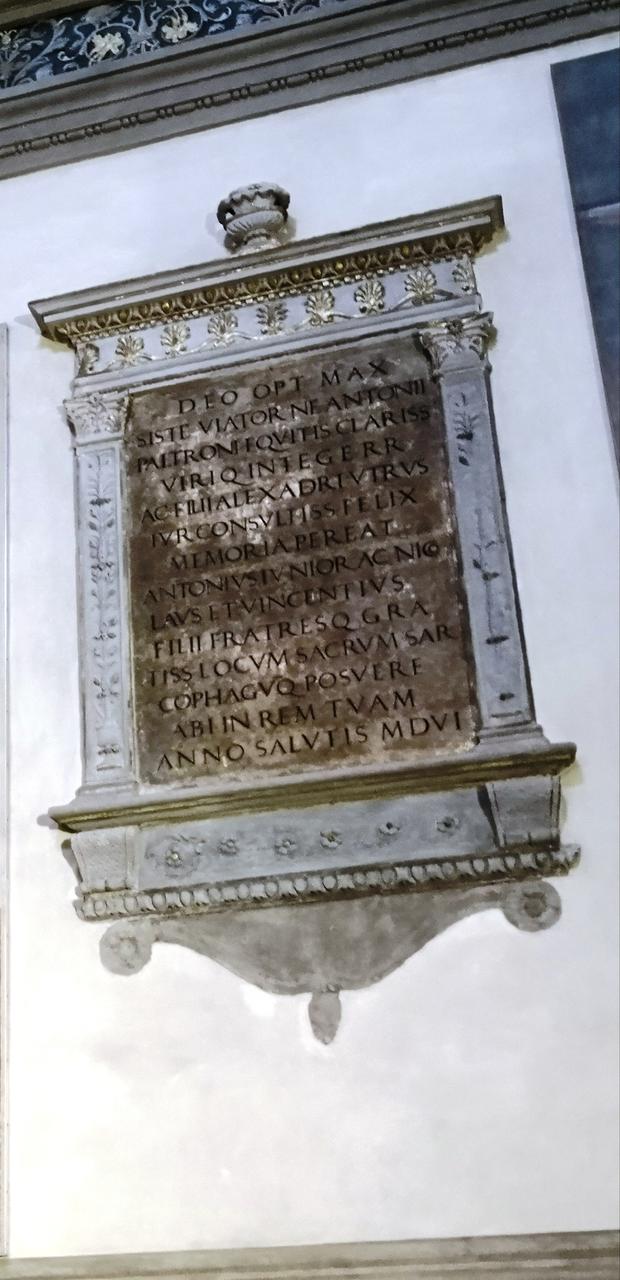 DEO OPT MAX
SISTE VIATOR NE ANTONII
PALTRONI EQVITIS CLARISS
VIRIQ INTEGERR
AC FILII ALEXADRI VTRVS
IVRCONSVLTISS FELIX
MEMORIA PEREAT
ANTONIVS IVNIOR AC NICO
LAVS ET VINCENTIVS
FILII FRATRESQ GRA
TISS LOCVM SACRVM SAR
COPHAGVQ POSVERE
ABI IN REM TVAM
ANNO SALVTIS MDVI